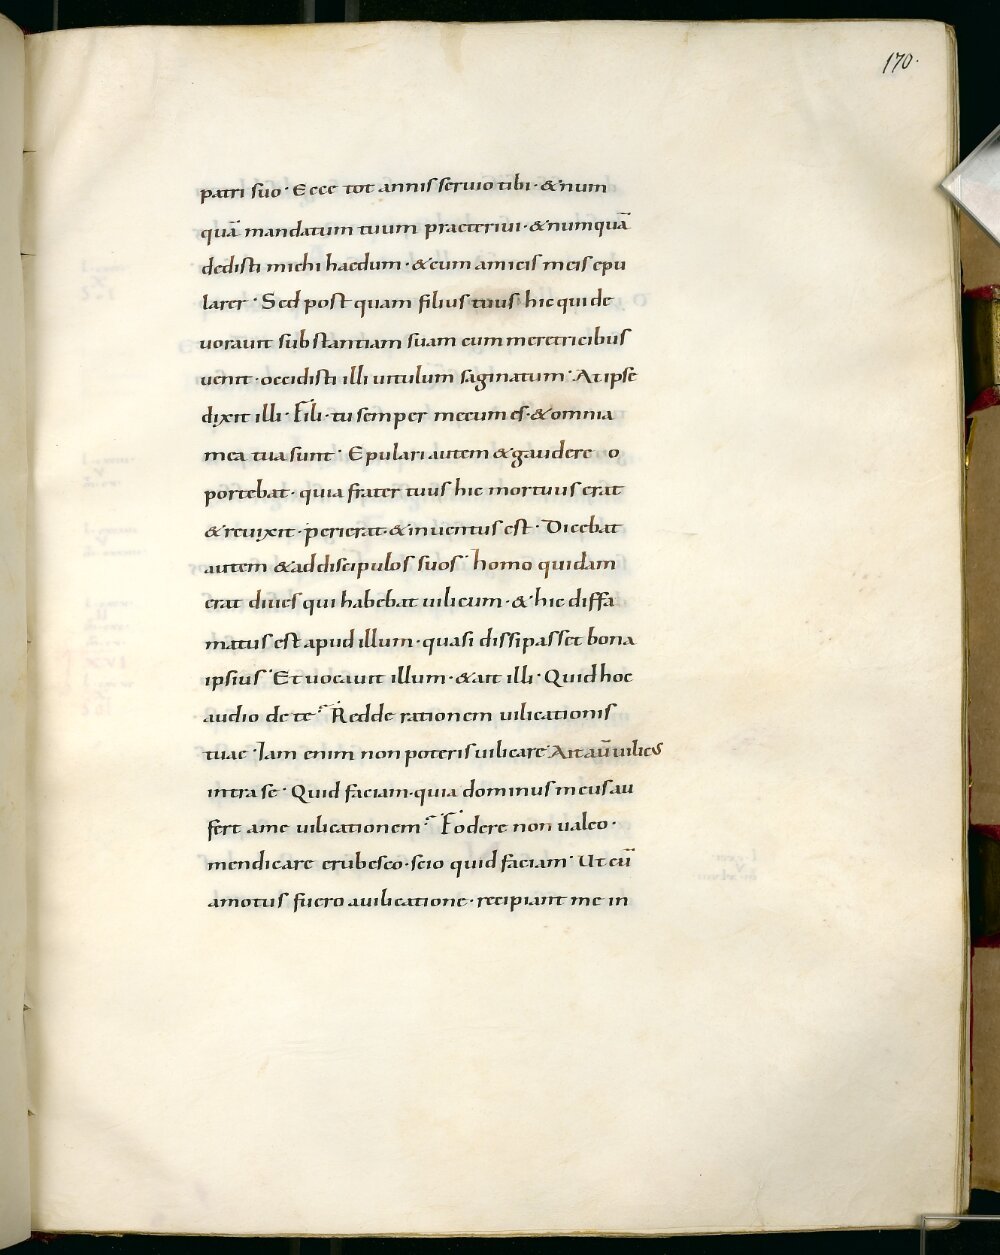 170.
patri suo· Ecce tot annis seruio tibi· & num
quā mandatum tuum praeteriui· & numquā
dedisti michi haedum· & cum amicis meis epu
larer· Sed post quam filius tuus hic qui de
uorauit substantiam suam cum meretricibus
uenit· occidisti illi uitulum saginatum· At ipse
dixit illi· Fili· tu semper mecum es· & omnia
mea tua sunt· Epulari autem & gaudere o
portebat· quia frater tuus hic mortuus erat
& reuixit· perierat· & inuentus est· Dicebat
autem & ad discipulos suos· homo quidam
erat diues qui habebat uilicum· & hic diffa
matus est apud illum· quasi dissipasset bona
ipsius· Et uocauit illum· & ait illi· Quid hoc
audio de te? Redde rationem uilicationis
tuae· Iam enim non poteris uilicare· Ait aū uilicus
intra se· Quid faciam· quia dominus meus au
fert a me uilicationem? Fodere non ualeo·
mendicare erubesco· scio quid faciam· Ut cū
amotus fuero a uilicatione· recipiant me in